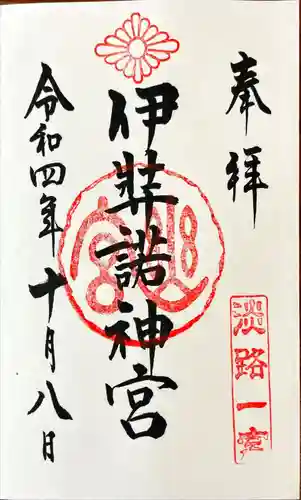 奉拝
淡路一宮
伊弉諾神宮
令和四年十月八日